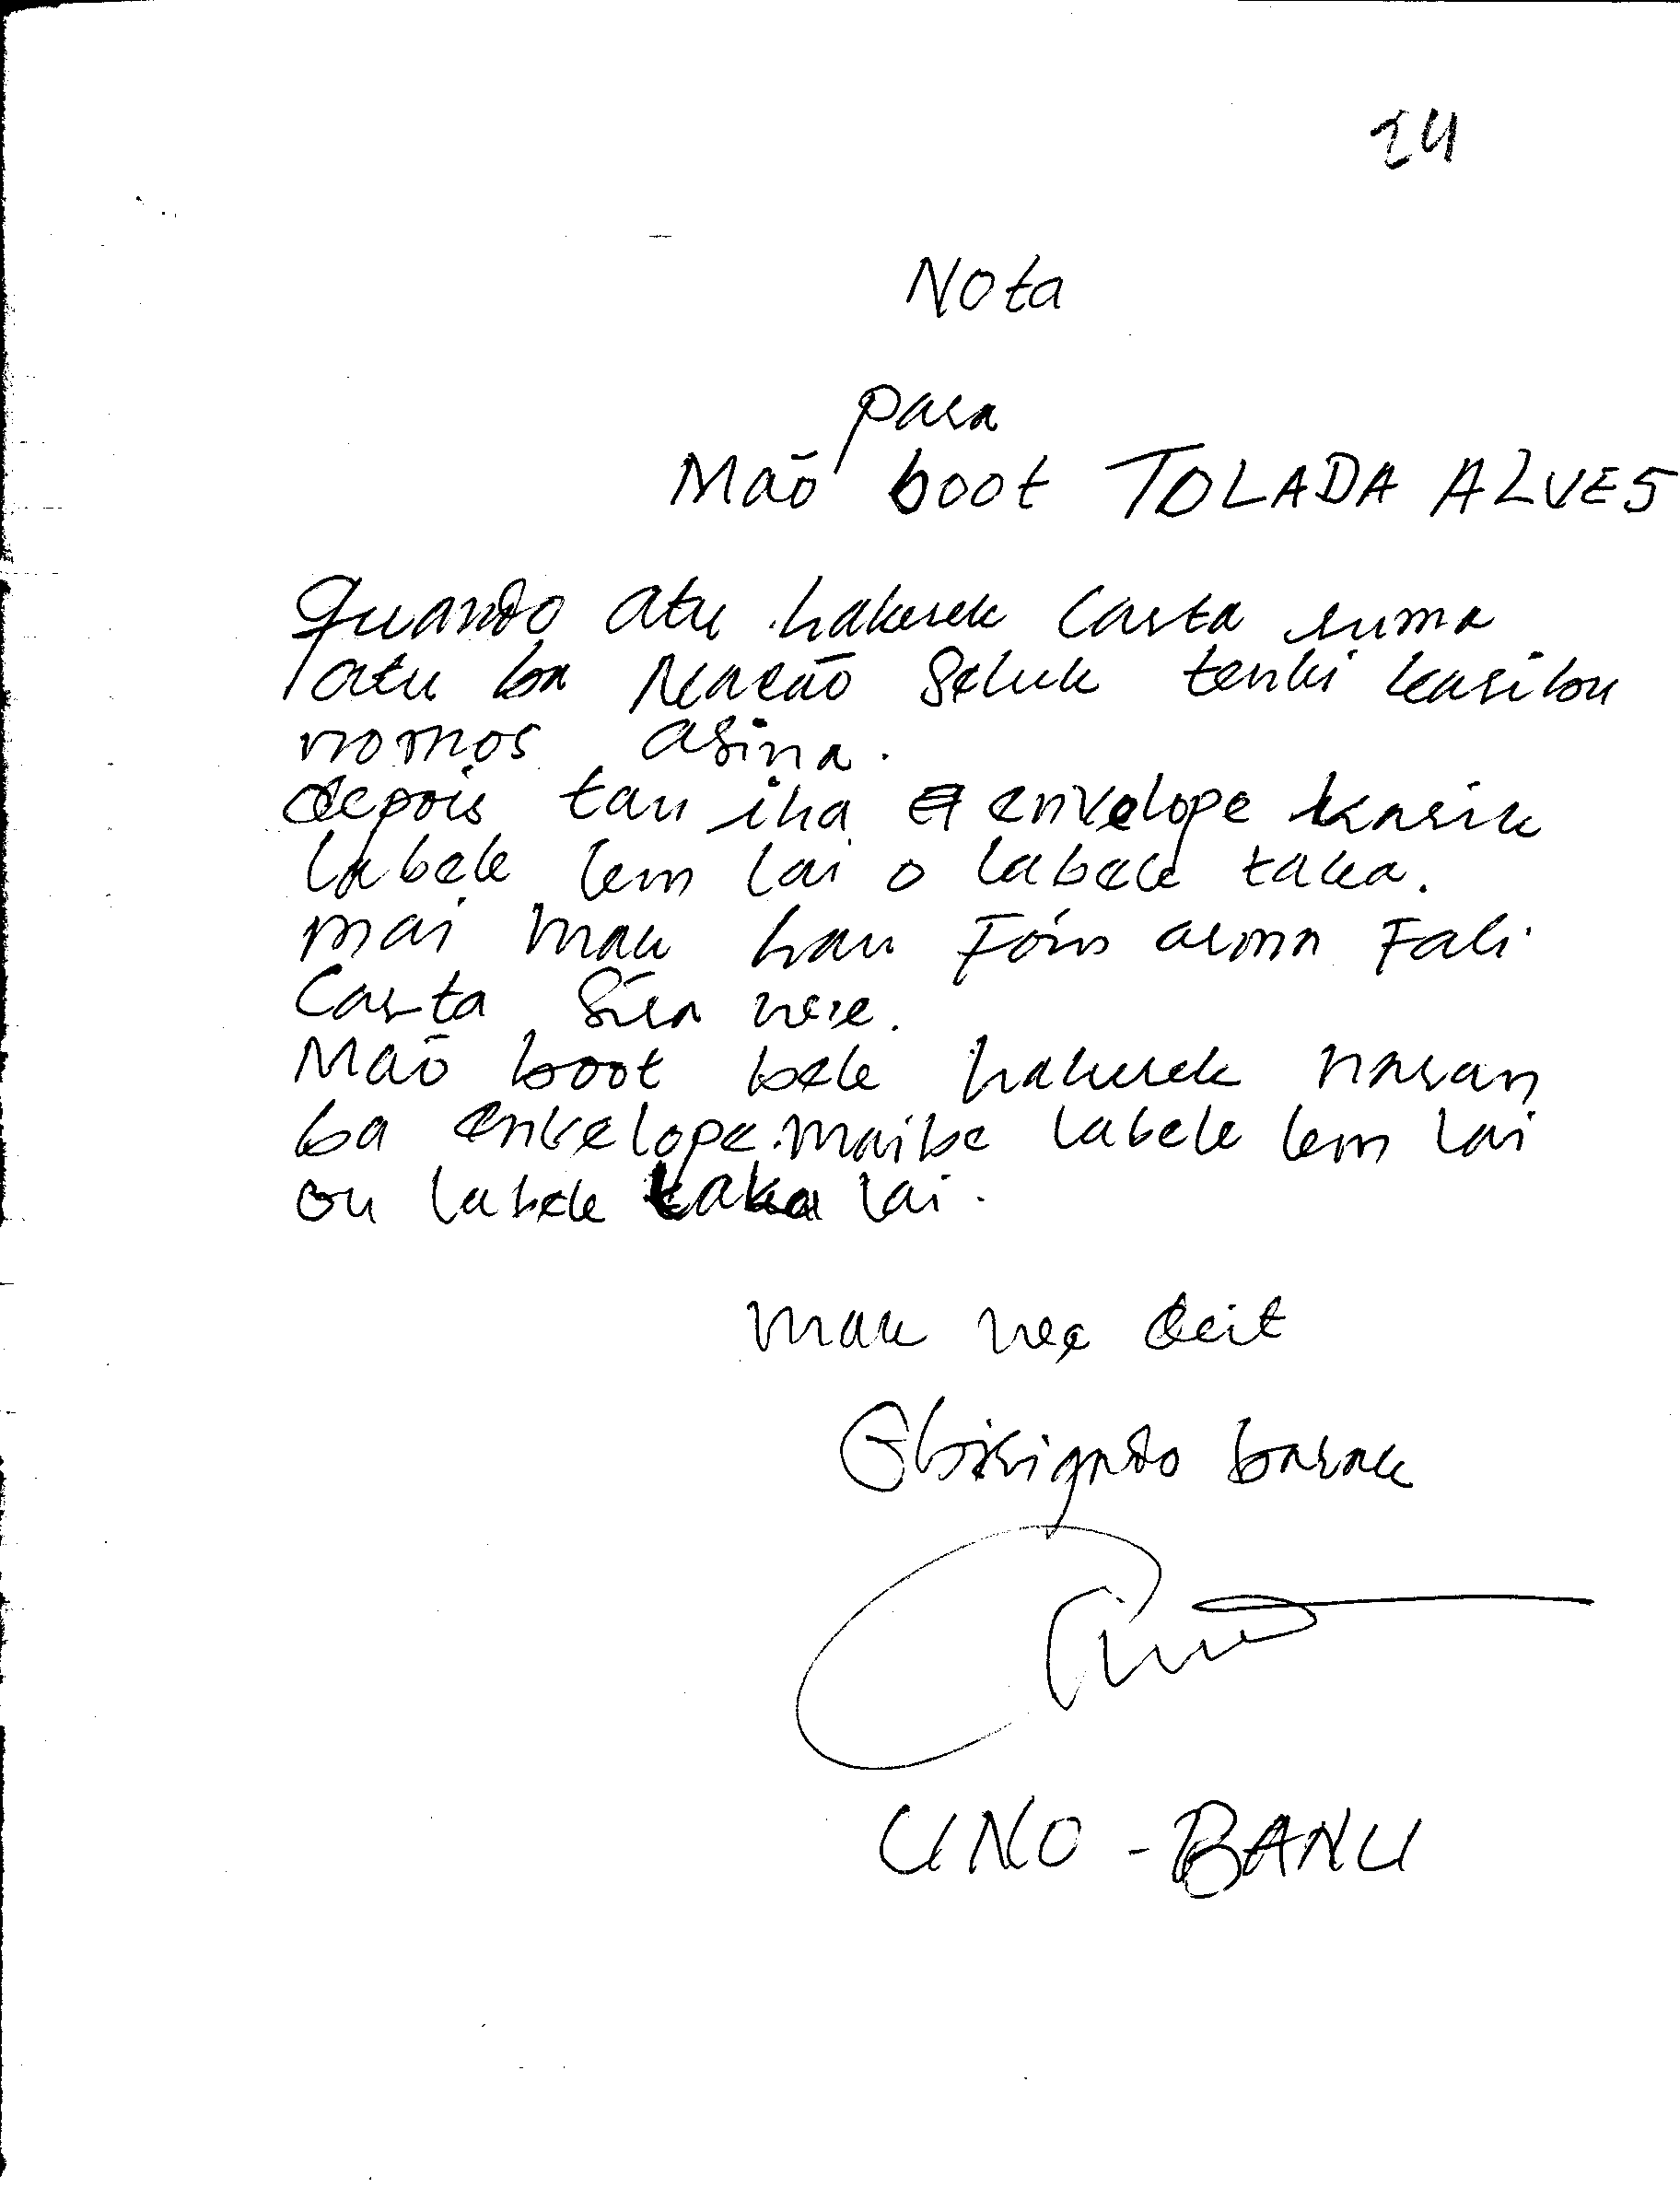 24
Nota
para
Maõ boot TOLADA ALVES
Quando atu hakerek Carta ruma
atu ba Nacaõ Seluk tenki karibu
nomos asina.
depois tau iha envelope
labele lem lai o labele taka.
mai mau hau Foin aruma Fali
Carta Sira nee.
Maõ boot bele hakerek naran
ba envelope. Maibe labele lem lai
ou labele taka lai.
mak nee deit
Obirigado barak
UNO - BANU